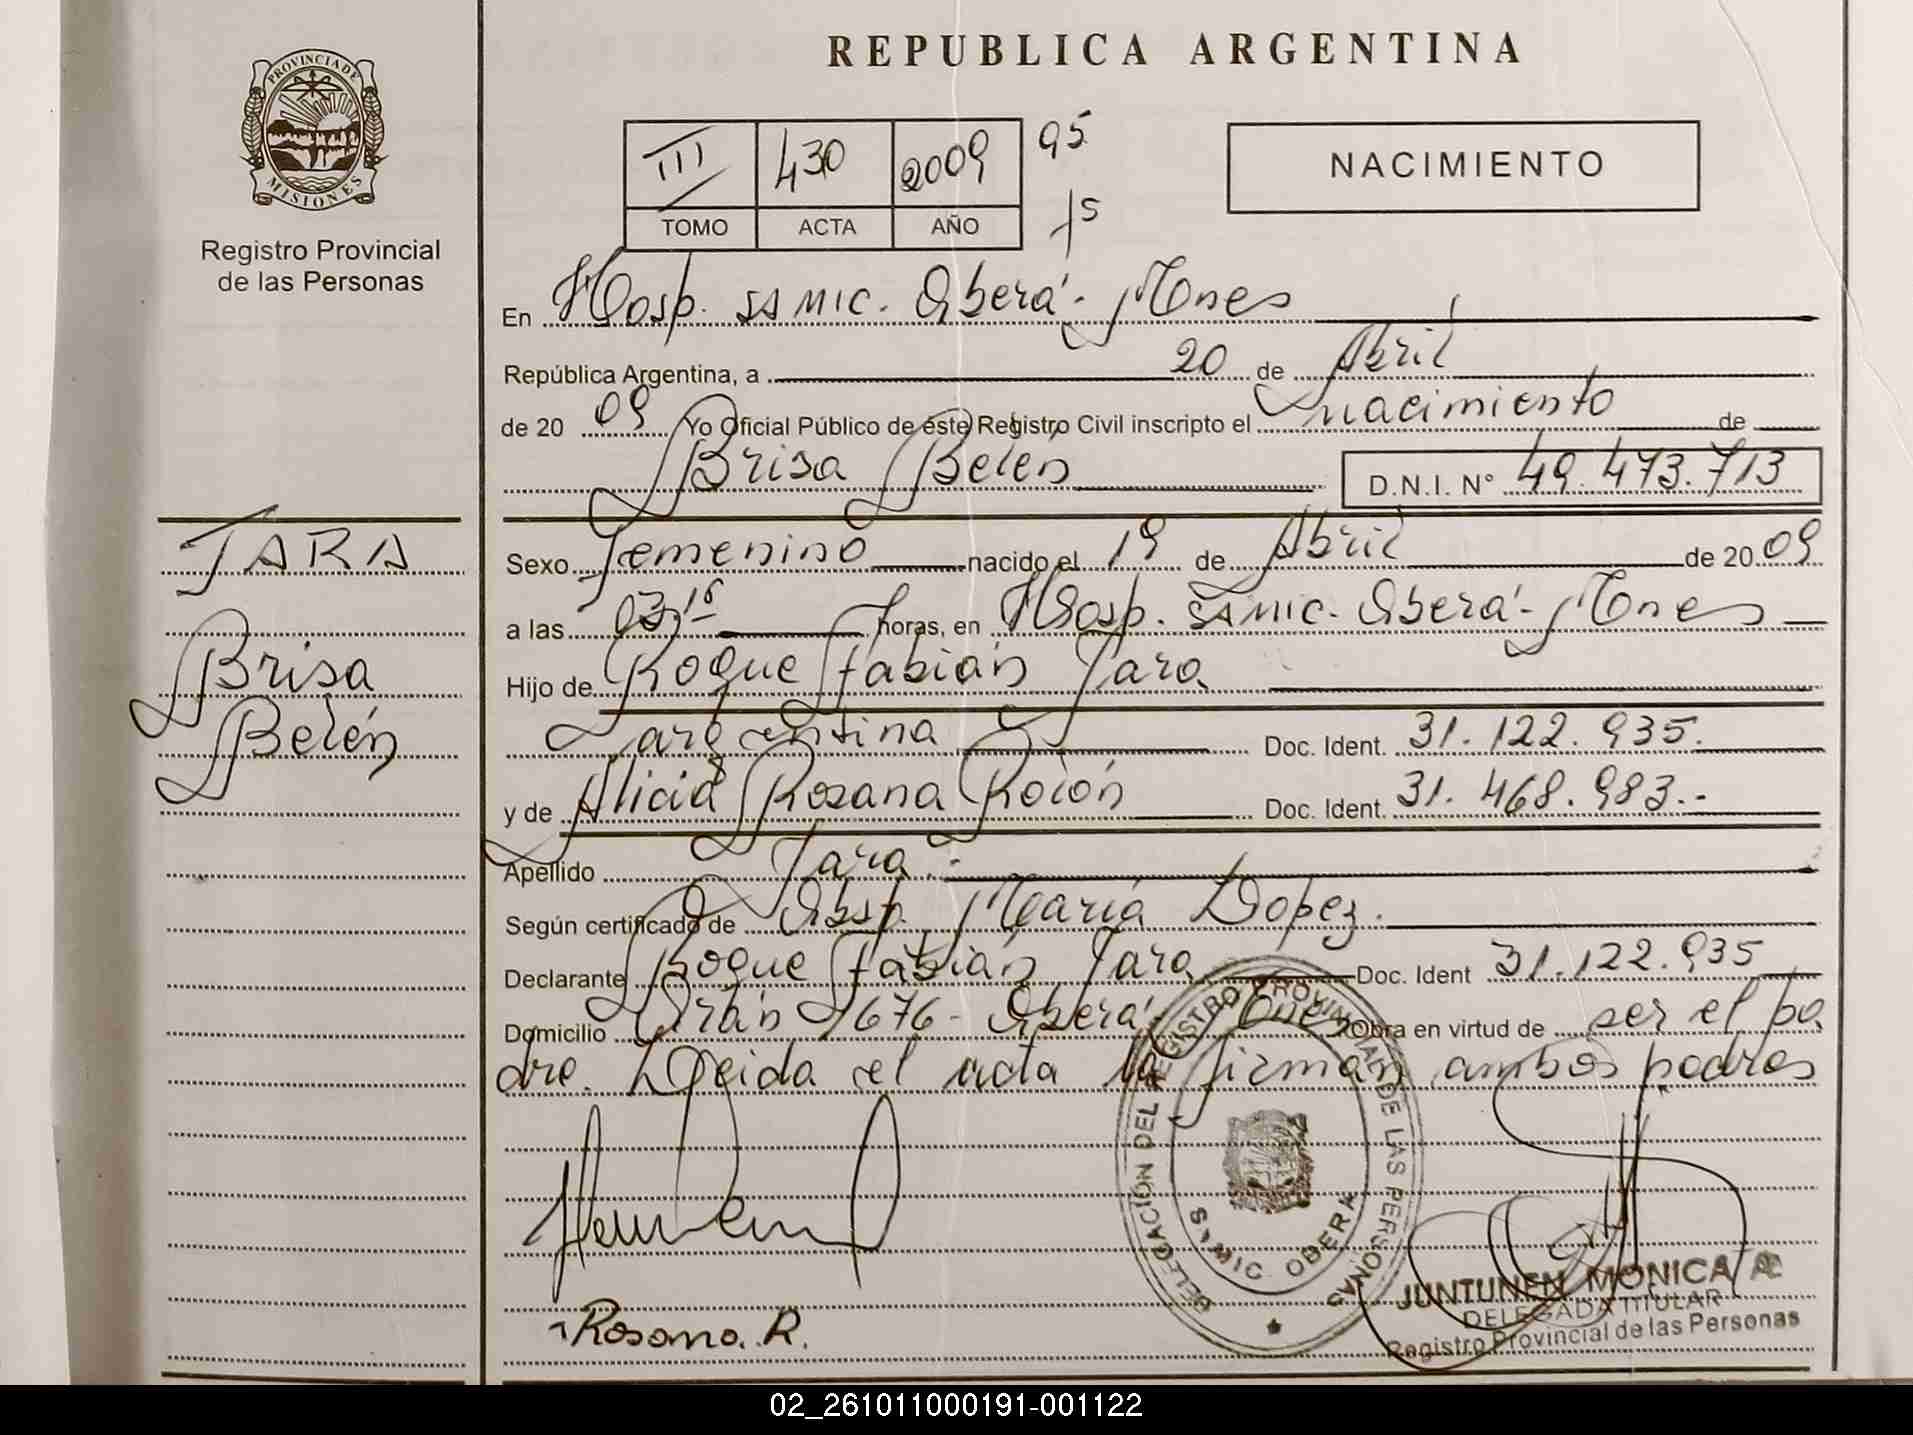 PROVINCIA DE
MISIONES
Registro Provincial
de las Personas
JARA
Brisa
Belén
REPUBLICA ARGENTINA
III 430 2009 95
TOMO ACTA AÑO 75
NACIMIENTO
En Hosp. SAMIC. Oberá - Mnes
República Argentina, a 20 de Abril
de 20 09 Yo Oficial Público de éste Registro Civil inscripto el nacimiento de
Brisa Belén D.N.I. N° 49.473.713
Sexo Femenino nacido el 19 de Abril de 20 09
a las 03,15 horas, en Hosp. SAMIC. Oberá - Mnes
Hijo de Roque Fabián Jara
argentina Doc. Ident. 31.122.935.
y de Alicia Rosana Rolón Doc. Ident. 31.468.983.-
Apellido Jara.-
Según certificado de Obst. María Lopez.
Declarante Roque Fabián Jara Doc. Ident 31.122.935
Domicilio Orán 1676 - Oberá - Mnes Obra en virtud de ser el pa
dre. Leida el acta la firman ambos padres
Rosana. R.
DELEGACIÓN DEL REGISTRO PROVINCIAL DE LAS PERSONAS
SAMIC OBERA
JUNTUNEN MONICA
DELEGADA TITULAR
Registro Provincial de las Personas
02_261011000191-001122